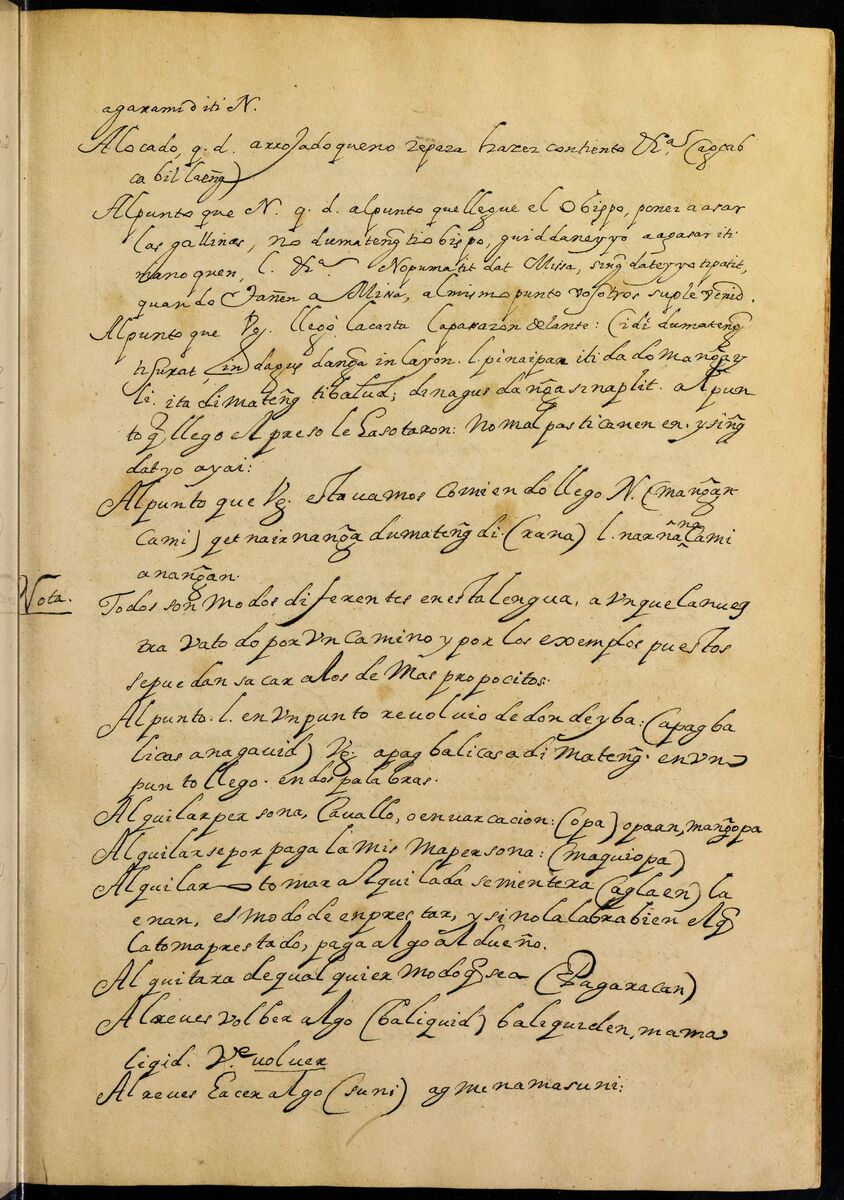 agaramid iti N.
Alocado, q. d. arrojado que no repara hazer contiento &rª. (Cagcab
cabillaeng)
Alpunto que N. q. d. alpunto que llegue el Obispo, poner a asar
las gallinas, no dumateng ti obispo, quiddaneyyo aagasar iti
manoquen, l. &rª. No pumatit dat Missa, sing dateyyo tipatit,
quando tañen a Misa, al mismo punto vosotros suple venid.
Alpunto que Vg. llegò la carta la parazon delante: (idi dumateng
ti surat, in dagus danga inlayon. l. pinaipan iti da do mangay
li. ita dimateng tibalud; dinagus danga sinaplit. alpun
to q llego el preso le hasotaron: No malpas ticanen en. y sing
datyo ayai:
Alpunto que Vg. estavamos Comiendo llego N. (mangan
Cami) qet nairnanga dumateng di. (rana) l. narñana Cami
anangan.
Nota. Todos son modos diferentes en esta lengua, aunque la nues
tra va todo por un camino y por los exemplos puestos
se puedan sacar a los de Mas propocitos.
Alpunto. l. en un punto revolvio de donde yba: (apag ba
licas a nagavid) Vg. apag balicas a dimateng. en un
punto llego. en dos palabras.
Alquilar persona, Cavallo, o envarcacion: (opa) opaan, mangopa
Alquilarse por paga la mis ma persona: (maquiopa)
Alquilar tomar alquilada sementera (aglaen) la
enan, es modo de enprestar, y si no la labra bien el q
la toma prestado, paga algo al dueño.
Alquitara de qualquier modo q sea (Pagaracan)
Alreves volber algo (baliquid) balequiden, mama
ligid. Ve. volver
Alreves hacer algo (suni) agmenamasuni: